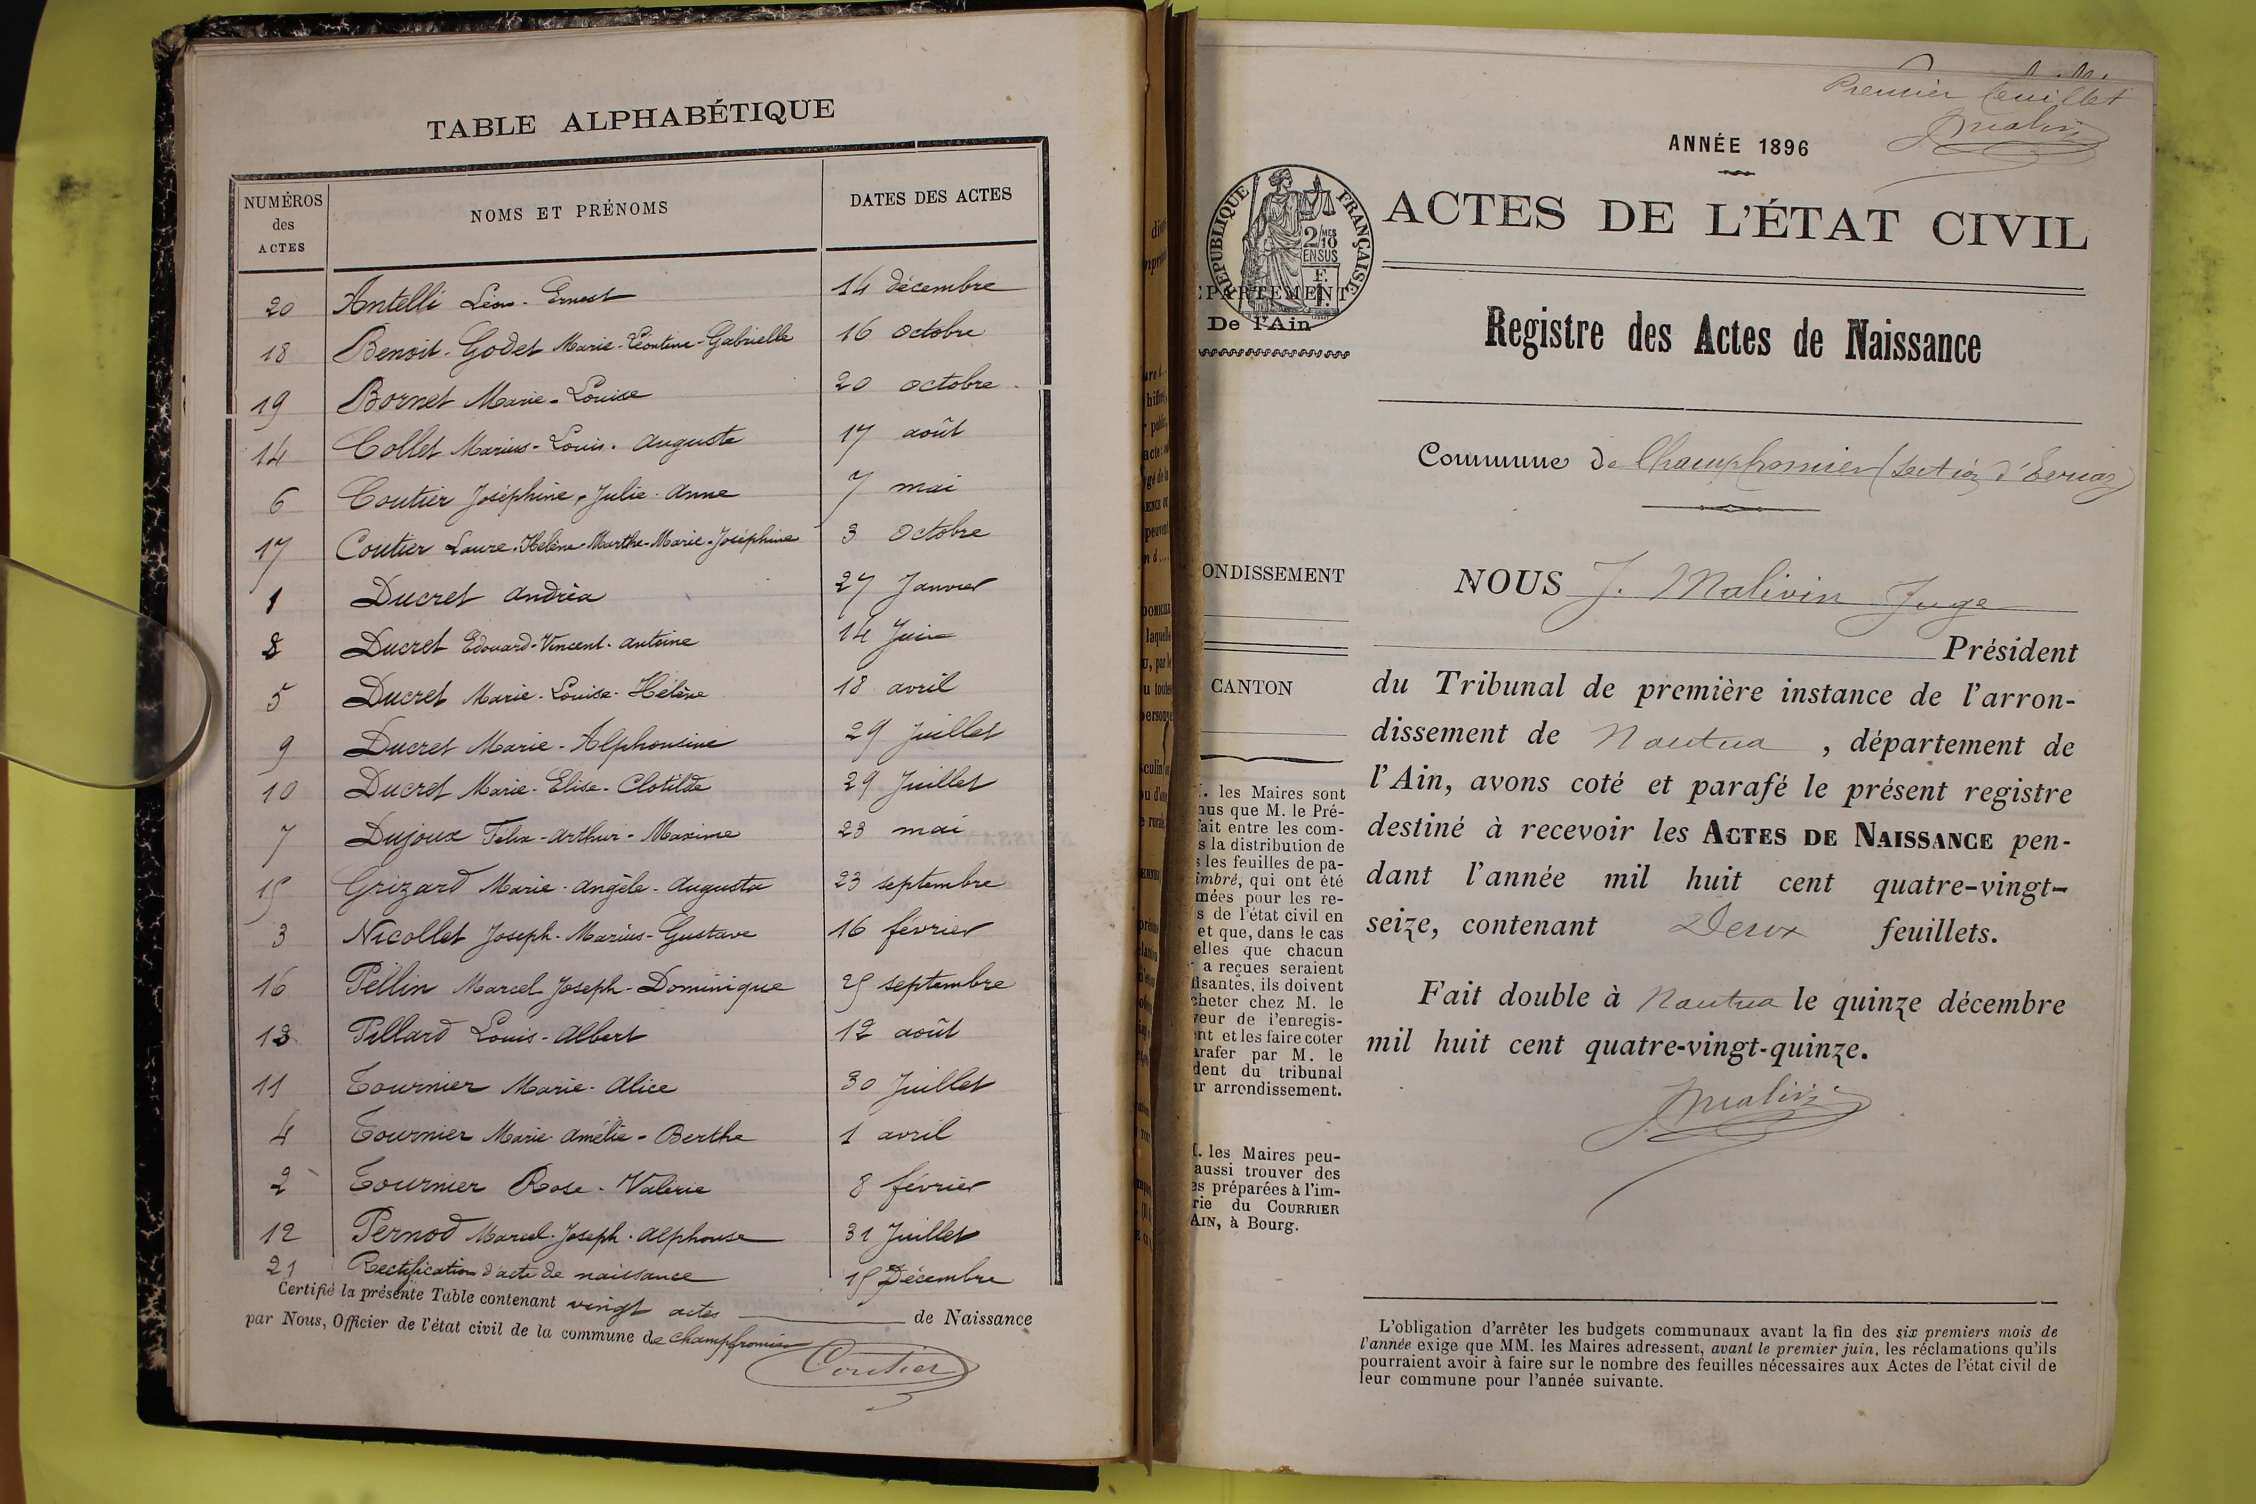 TABLE ALPHABÉTIQUE
NUMÉROS des ACTES NOMS ET PRÉNOMS DATES DES ACTES
20 Antelli Léon-Ernest 14 décembre
18 Benoit-Godet Marie-Léontine-Gabrielle 16 octobre
19 Bornet Marie-Louise 20 octobre
14 Collet Marius-Louis-Auguste 17 août
6 Coutier Joséphine-Julie-Anne 7 mai
17 Coutier Laure-Hélène-Marthe-Marie-Joséphine 3 Octobre
1 Ducret Andréa 27 Janvier
8 Ducret Edouard-Vincent-Antoine 14 Juin
5 Ducret Marie-Louise-Hélène 18 avril
9 Ducret Marie-Alphonsine 29 Juillet
10 Ducret Marie-Elise-Clotilde 29 Juillet
7 Dujoux Félix-Arthur-Maxime 23 mai
15 Grizard Marie-Angèle-Augusta 23 septembre
3 Nicollet Joseph-Marius-Gustave 16 février
16 Pellin Marcel Joseph-Dominique 25 septembre
13 Pillard Louis-Albert 12 août
11 Tournier Marie-Alice 30 Juillet
4 Tournier Marie-Amélie-Berthe 1 avril
2 Tournier Rose-Valérie 8 février
12 Pernod Marcel-Joseph-Alphonse 31 Juillet
21 Rectification d'acte de naissance 15 Décembre
Certifié la présente Table contenant vingt actes de Naissance
par Nous, Officier de l'état civil de la commune de Champfromier
Coutier
Premier feuillet
Malivin
ANNÉE 1896
RÉPUBLIQUE FRANÇAISE
2/10 EN SUS
ACTES DE L'ÉTAT CIVIL
DÉPARTEMENT
De l'Ain
Registre des Actes de Naissance
Commune de Champfromier (section d'Evuaz)
ONDISSEMENT
NOUS J. Malivin Juge
Président
CANTON
du Tribunal de première instance de l'arron-
dissement de Nantua, département de
l'Ain, avons coté et parafé le présent registre
destiné à recevoir les ACTES DE NAISSANCE pen-
dant l'année mil huit cent quatre-vingt-
seize, contenant Deux feuillets.
Fait double à Nantua le quinze décembre
mil huit cent quatre-vingt-quinze.
J Malivin
. les Maires sont
nus que M. le Pré-
fait entre les com-
s la distribution de
s les feuilles de pa-
imbré, qui ont été
mées pour les re-
s de l'état civil en
et que, dans le cas
elles que chacun
a reçues seraient
fisantes, ils doivent
cheter chez M. le
veur de l'enregis-
nt et les faire coter
arafer par M. le
dent du tribunal
ur arrondissement.
. les Maires peu-
aussi trouver des
es préparées à l'im-
rie du COURRIER
AIN, à Bourg.
L'obligation d'arrêter les budgets communaux avant la fin des six premiers mois de
l'année exige que MM. les Maires adressent, avant le premier juin, les réclamations qu'ils
pourraient avoir à faire sur le nombre des feuilles nécessaires aux Actes de l'état civil de
leur commune pour l'année suivante.